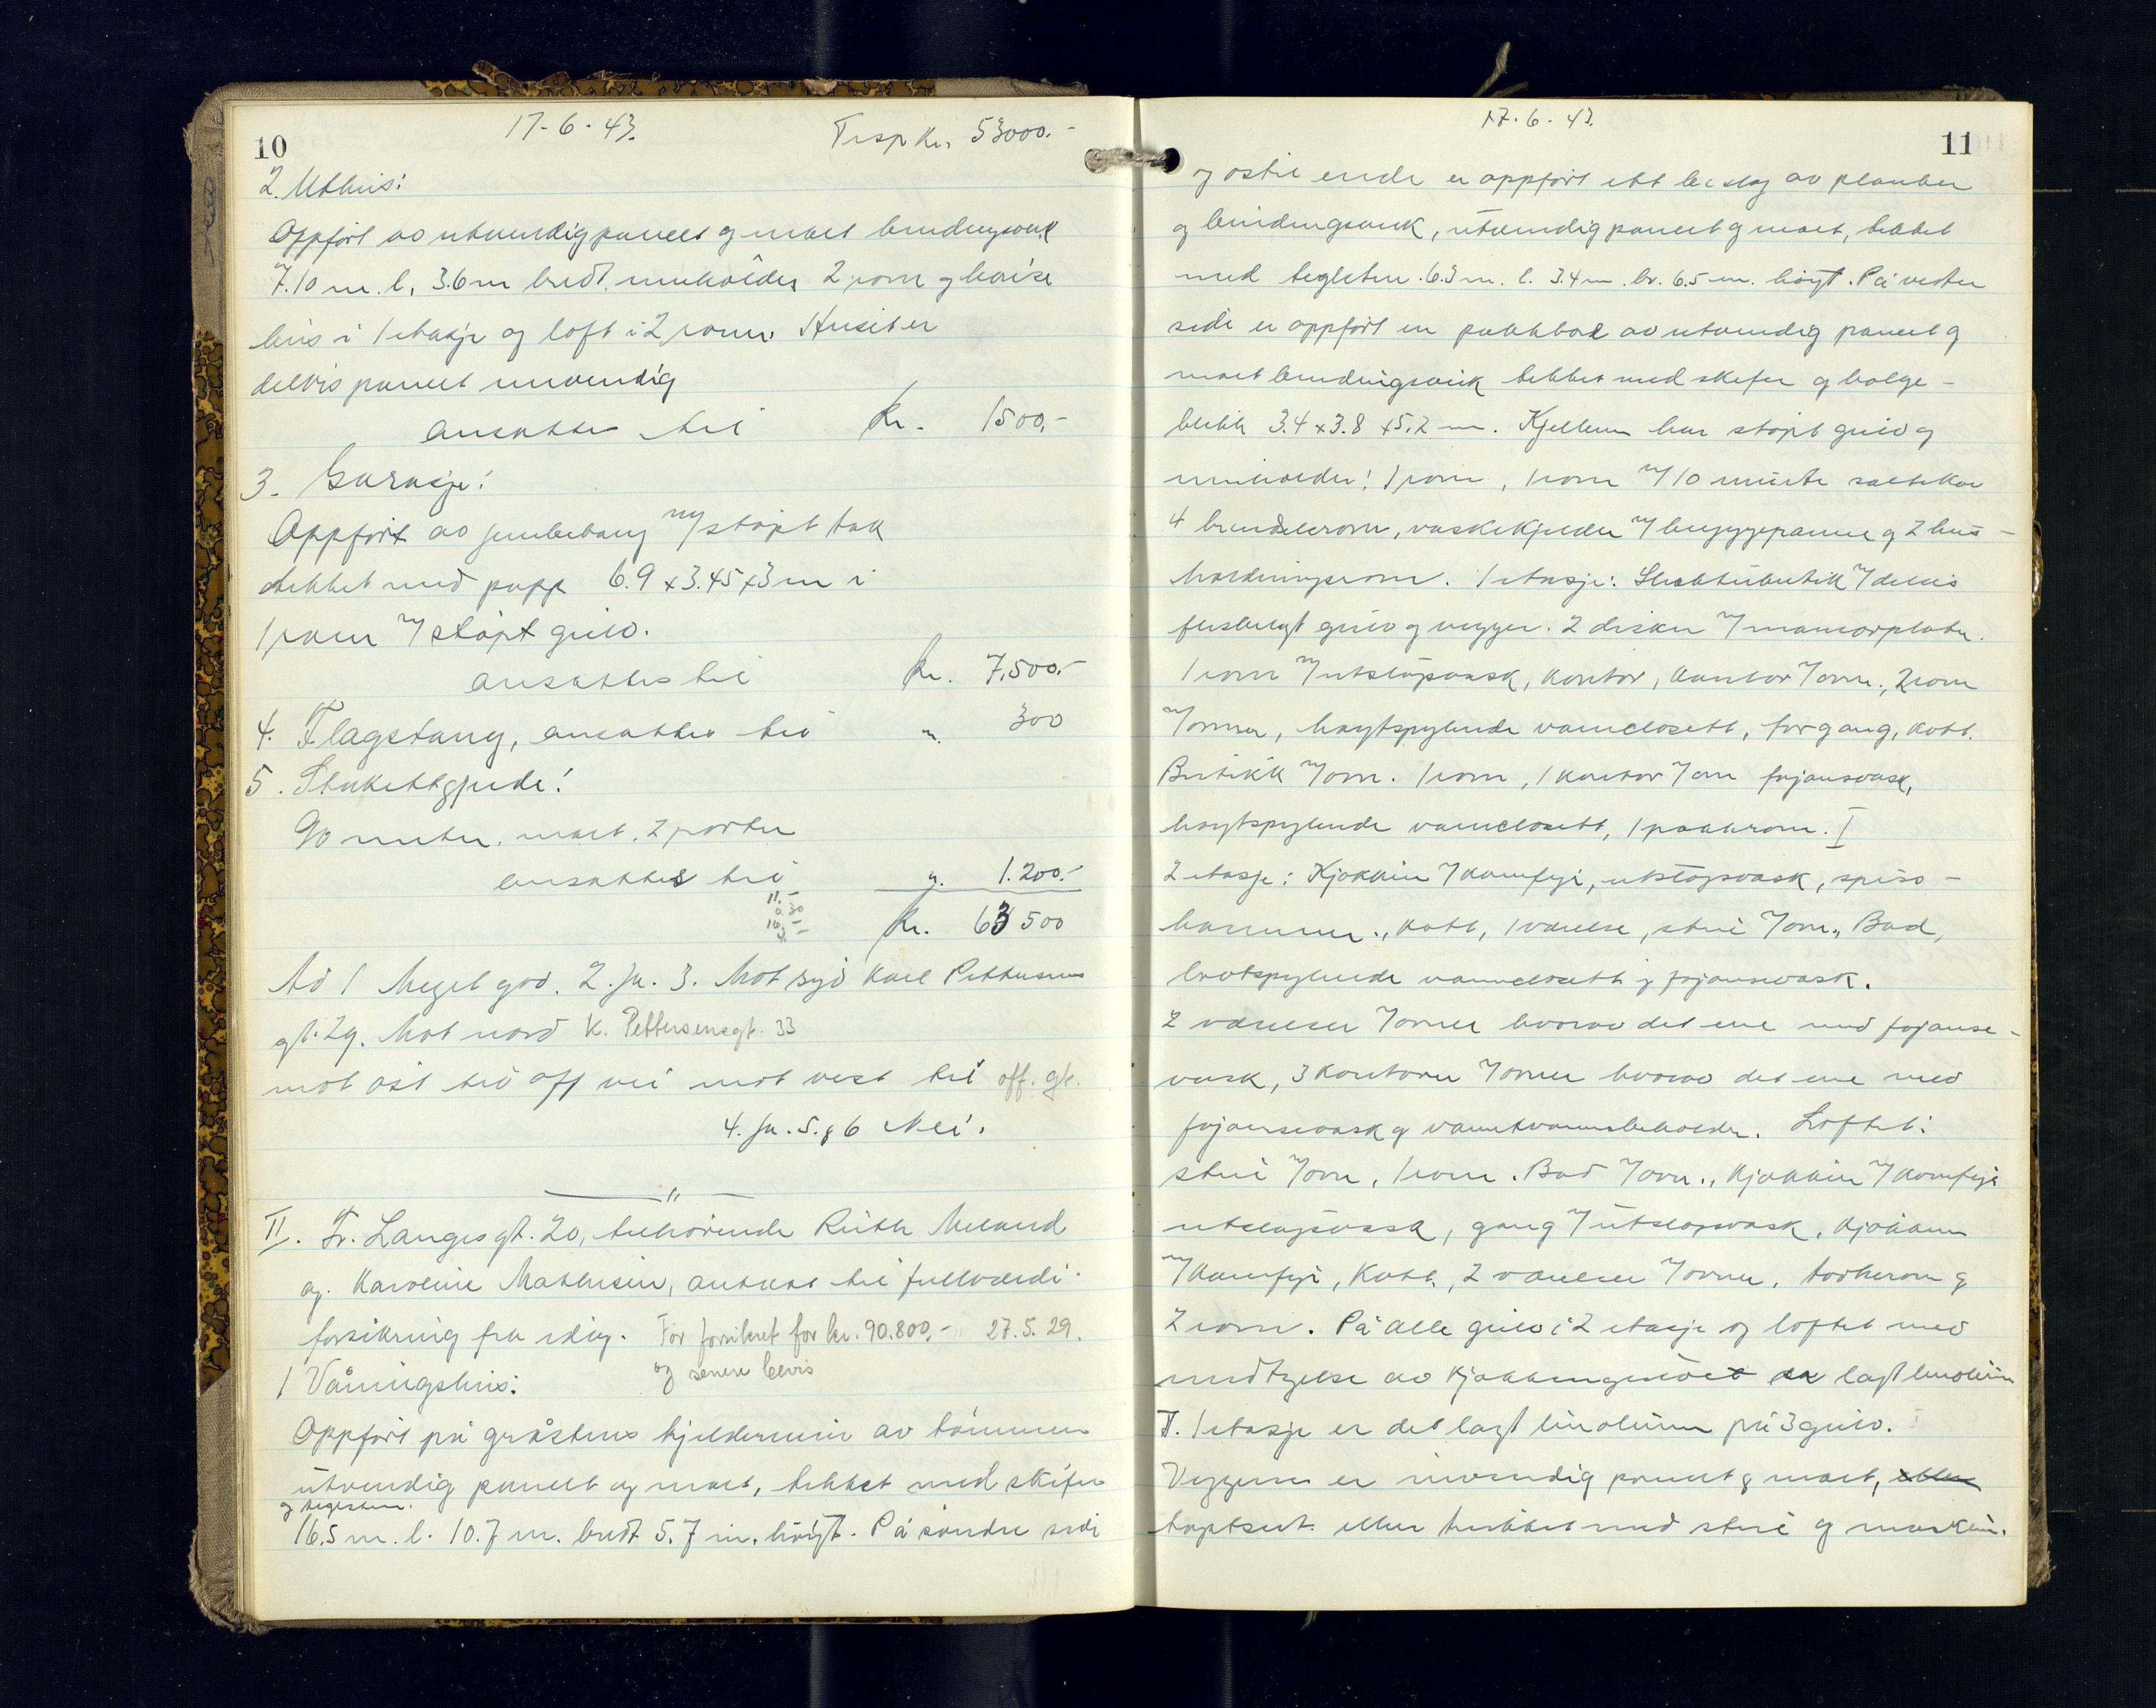 10
17-6-43.
Trsp kr. 53000.-
2. Uthus:
Oppført av utvendig panelt og malt bindingsverk
7.10 m. l. 3.6 m bredt. inneholder 2 rom og
hus i 1 etasje og loft i 2 rom. Huset er
delvis panelt innvendig
ansattes til Kr. 1500.-
3. Garasje:
Oppført av jernbetong m/ støpt tak
tekket med papp 6.9 x 3.45 x 3 m i
1 rom m/ støpt gulv.
ansattes til kr. 7.500.-
4. Flagstang, ansattes til " 300
5. Stakittgjerde:
90 meter, malt, 2 porter
ansattes til " 1.200.-
Kr. 63 500
Ad 1 Meget god. 2. Ja. 3. Mot syd Karl Pettersens
gt. 29. Mot nord K. Pettersensgt. 33
mot øst til off vei mot vest til off. gt.
4. Ja. 5. & 6 Nei.
II. Fr. Langes gt. 20, tilhørende Ruth Meland
og Karoline Mathisen, antatt til fullverdi-
forsikring fra idag. Før forsikret for kr. 90.800.- 27.5.29.
og senere bevis
1 Våningshus:
Oppført på gråstens kjeldermur av tømmer
utvendig panelt og malt, tekket med skifer
og teglsten.
16.5 m. l. 10.7 m. bredt 5.7 m. høigt. På søndre side
11
17.6.43.
og østre ende er oppført ett av planker
og bindingsverk, utvendig panelt og malt, tekket
med teglsten. 6.3 m. l. 3.4 m. br. 6.5 m. høigt. På vestre
side er oppført en pakkbod av utvendig panelt og
malt bindingsverk tekket med skifer og bølge-
blikk 3.4 x 3.8 x 5.2 m. Kjelleren har støpt gulv og
inneholder: 1 rom, 1 rom m/ 10 murte saltekar
4 brendselrom, vaskekjeller m/ bryggepanne og 2 hus-
holdningsrom. 1 etasje: Slakterbutikk m/ delvis
fliselagt gulv og vegger. 2 disker m/ marmorplater.
1 rom m/ utslagsvask, kontor, kontor m/ ovn., 2 rom
m/ ovner, høytspylende vannclosett, forgang, kott.
Butikk m/ ovn. 1 rom, 1 kontor m/ ovn fajansevask,
høytspylende vannclosett, 1 pakkrom. I
2 etasje: Kjøkken m/ komfyr, utslagsvask, spise-
kammer., kott, 1 værelse, stue m/ ovn., Bad,
lavtspylende vannclosett og fajansevask.
2 værelser m/ ovner hvorav det ene med fajanse-
vask, 3 kontorer m/ ovner hvorav det ene med
fajansevask og varmtvannsbeholder. Loftet:
stue m/ ovn, 1 rom. Bad m/ ovn., kjøkken m/ komfyr
utslagsvask, gang m/ utslagsvask, kjøkken
m/ komfyr, Kott., 2 værelser m/ ovner, tørkerom og
2 rom. På alle gulv i 2 etasje og loftet med
unntagelse av kjøkkengulvet er lagt linoleum
I. 1 etasje er det lagt linoleum på 3 gulv.
Veggene er innvendig panelt & malt, eller
tapetsert. eller trukket med strie og maskin.